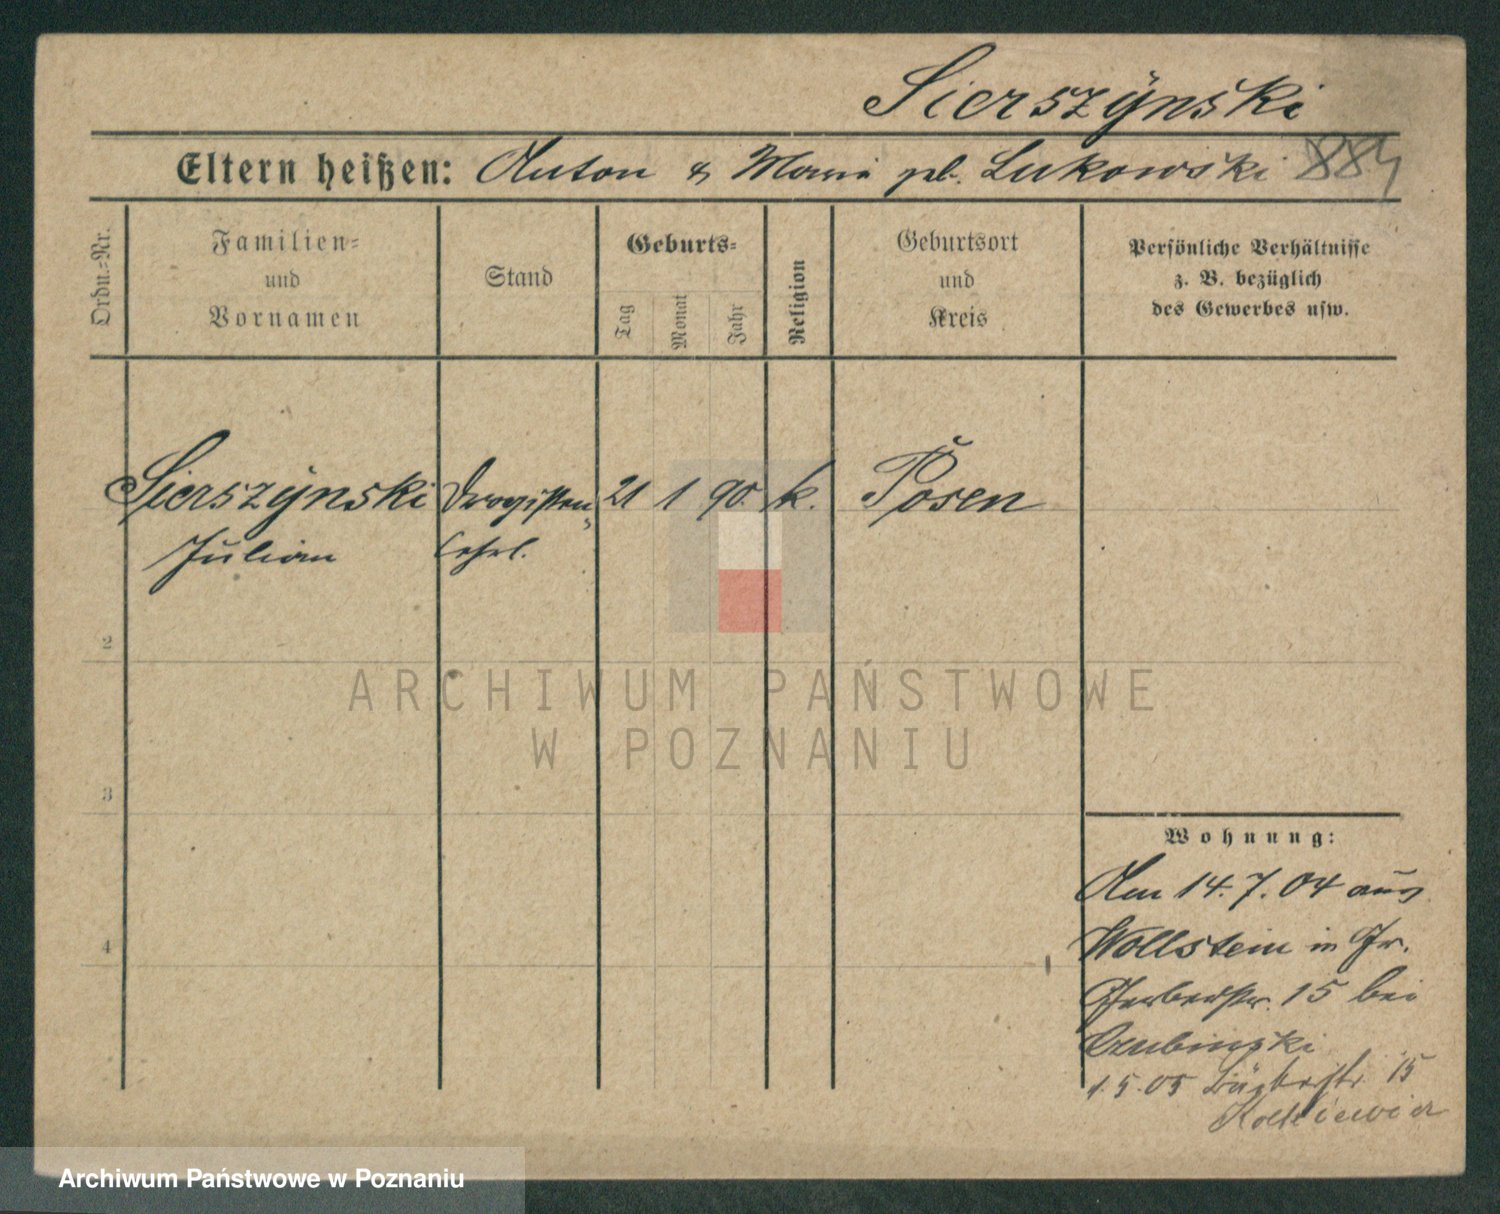 Sierszynski
Eltern heißen: Anton & Maria geb. Lukowski 884
Ordn.=Nr.
Familien=
und
Vornamen
Stand
Geburts=
Tag
Monat
Jahr
Religion
Geburtsort
und
Kreis
Persönliche Verhältnisse
z. B. bezüglich
des Gewerbes usw.
Sierszynski Drogisten 21 1 90. k. Posen
Julian Lehrl.
2
3
4
Wohnung:
Am 14.7.04 aus
Wollstein in Gr.
Gerberstr. 15 bei
Czubinski
1.5.05 15
ARCHIWUM PAŃSTWOWE
W POZNANIU
Archiwum Państwowe w Poznaniu